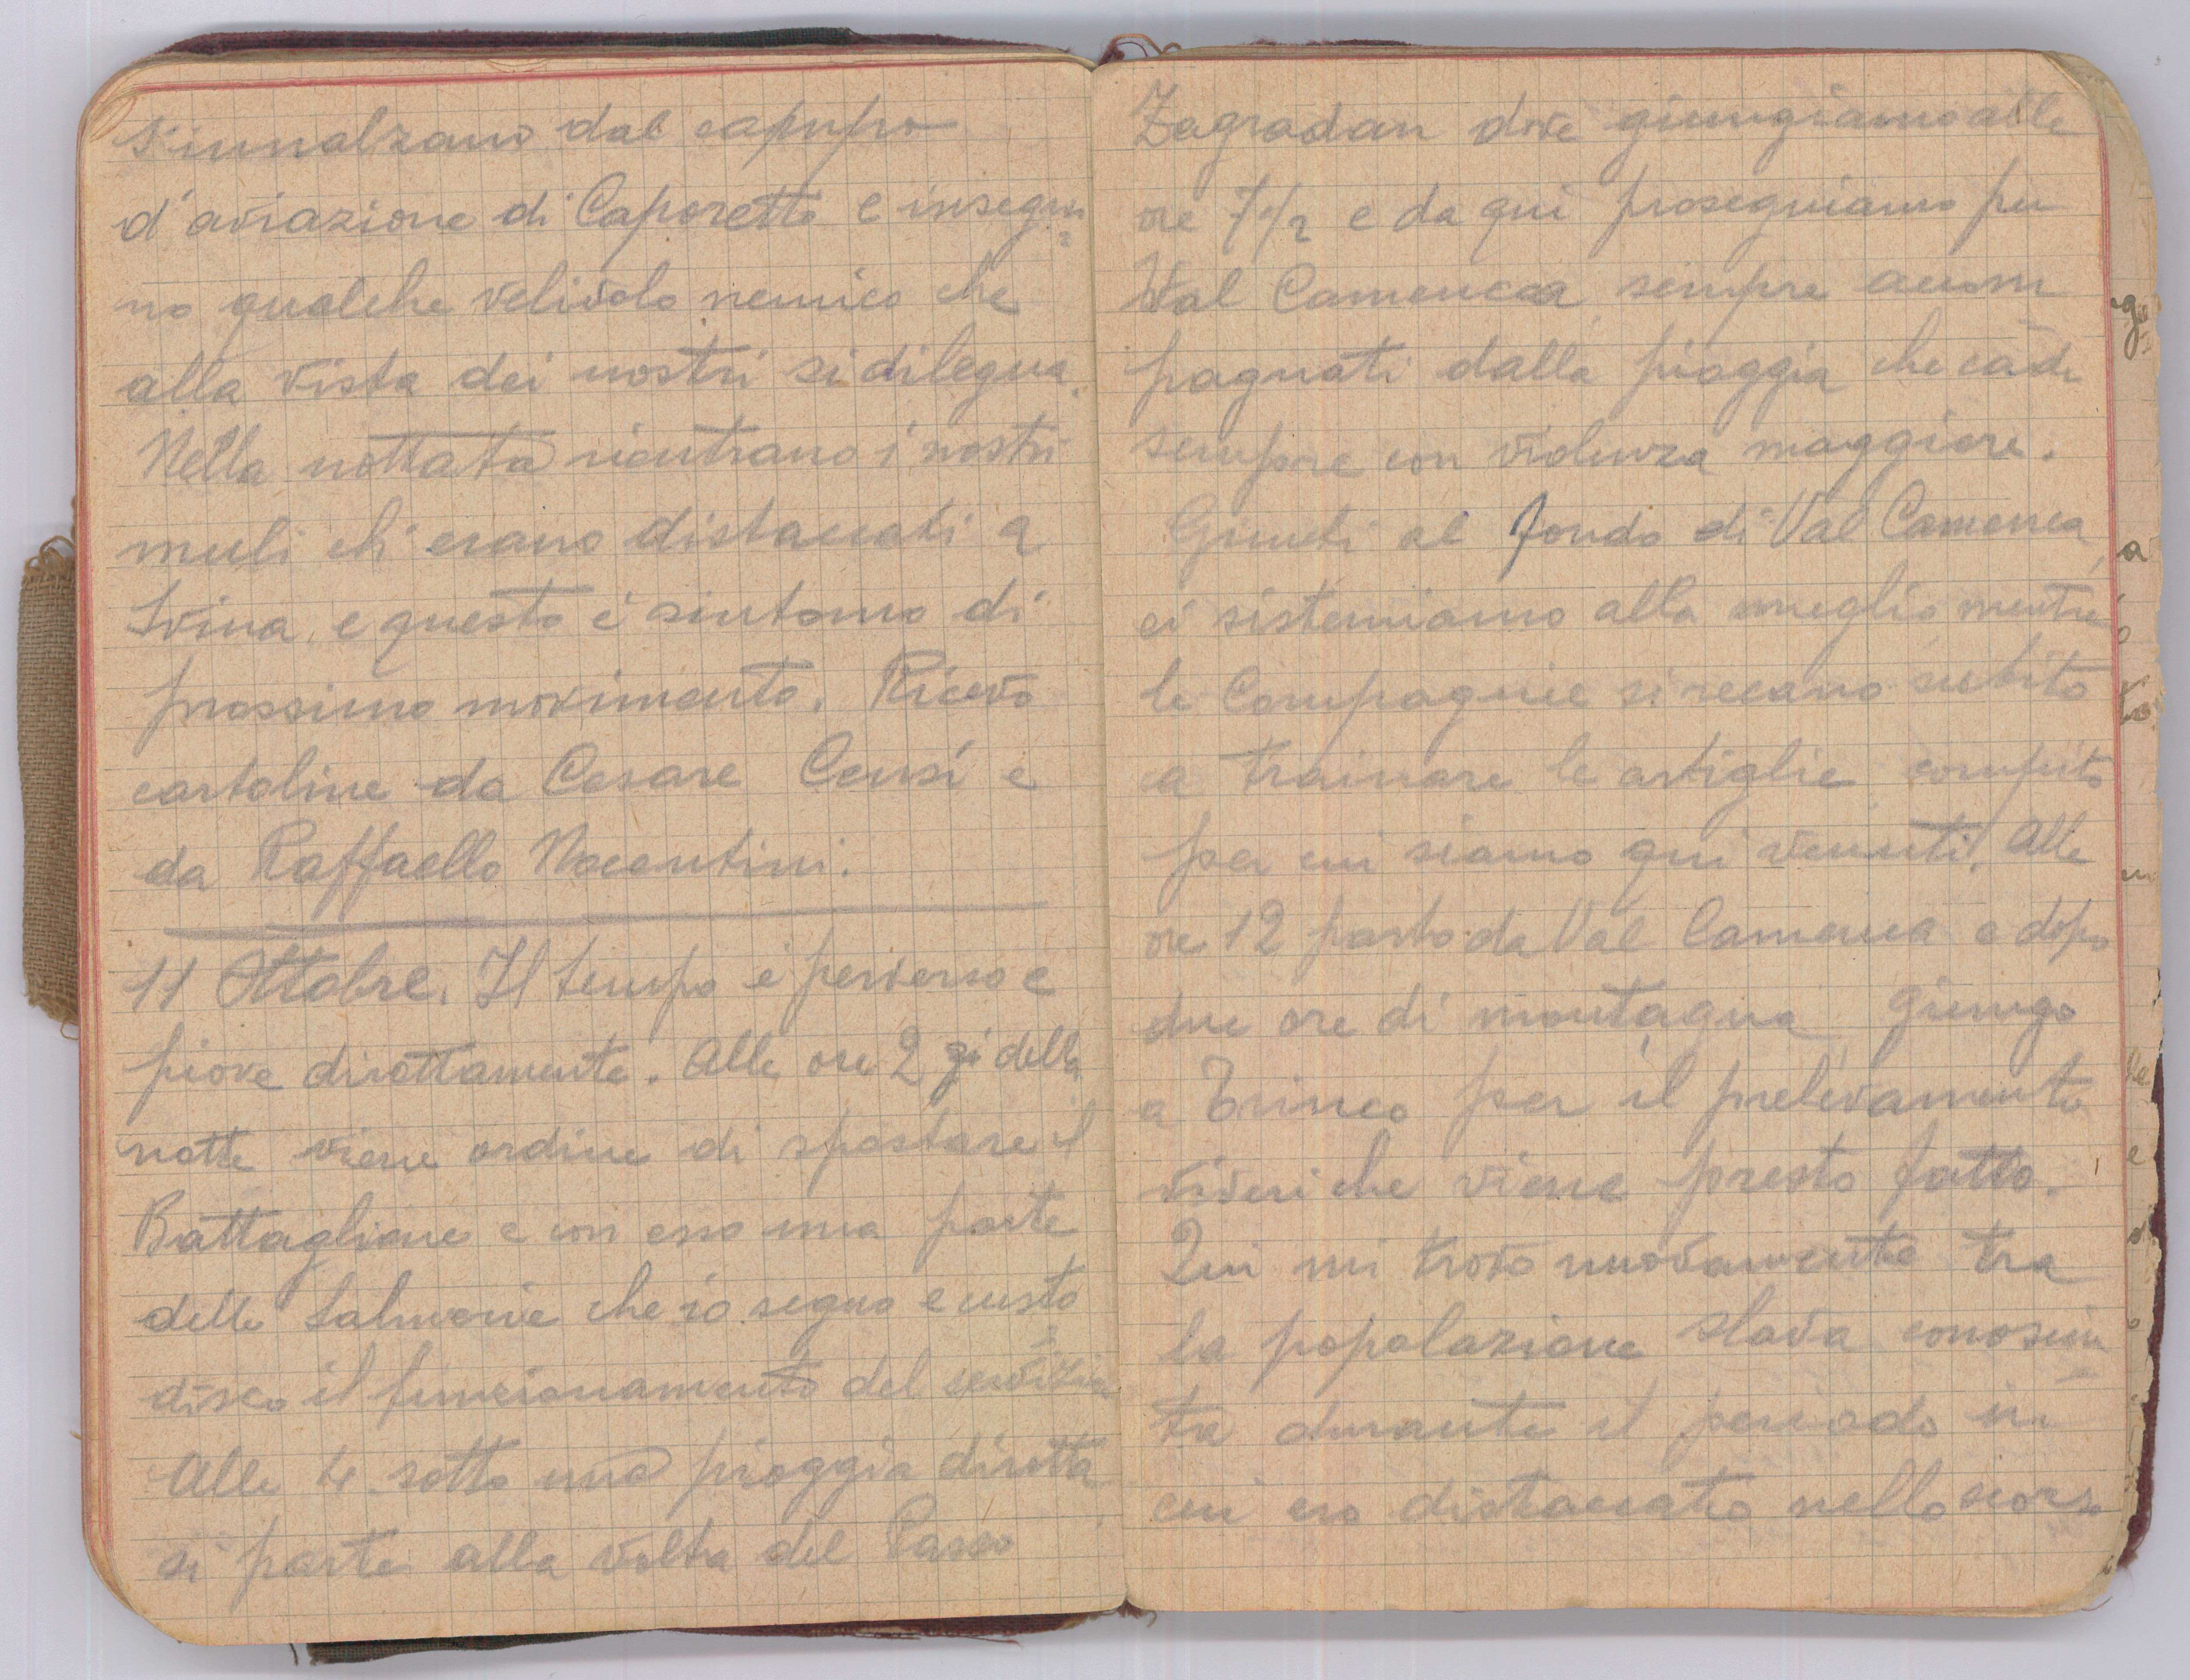 s'innalzano dal campo
d'aviazione di Caporetto e insegui=
no qualche velivolo nemico che
alla vista dei nostri si dilegua.
Nella nottata rientrano i nostri
muli ch'erano distaccati a
Svina, e questo è sintomo di
prossimo movimento. Ricevo
cartoline da Cesare Censi e
da Raffaello Nocentini.
11 Ottobre. Il tempo è perverso e
piove dirottamente. Alle ore 2 di della
notte viene ordine di spostare il
Battaglione e con esso una parte
delle Salmerie che io seguo e custo=
disco il funzionamento del servizio
Alle 4 sotto una pioggia dirotta
si parte alla volta del Passo
Zagradan dove giungiamo alle
ore 7 1/2 e da qui proseguiamo per
Val Camenca sempre accom=
pagnati dalla pioggia che cade
sempre con violenza maggiore.
Giunti al fondo di Val Camenca,
ci sistemiamo alla meglio mentre
le Compagnie si recano subito
a trainare le artiglie compito
per cui siamo qui venuti. Alle
ore 12 parto da Val Camenca e dopo
due ore di montagna, giungo
a Trinco per il prelevamento
viveri che viene presto fatto.
Qui mi trovo nuovamente tra
la popolazione slava conosciu=
ta durante il periodo in
cui ero distaccato nello scorso